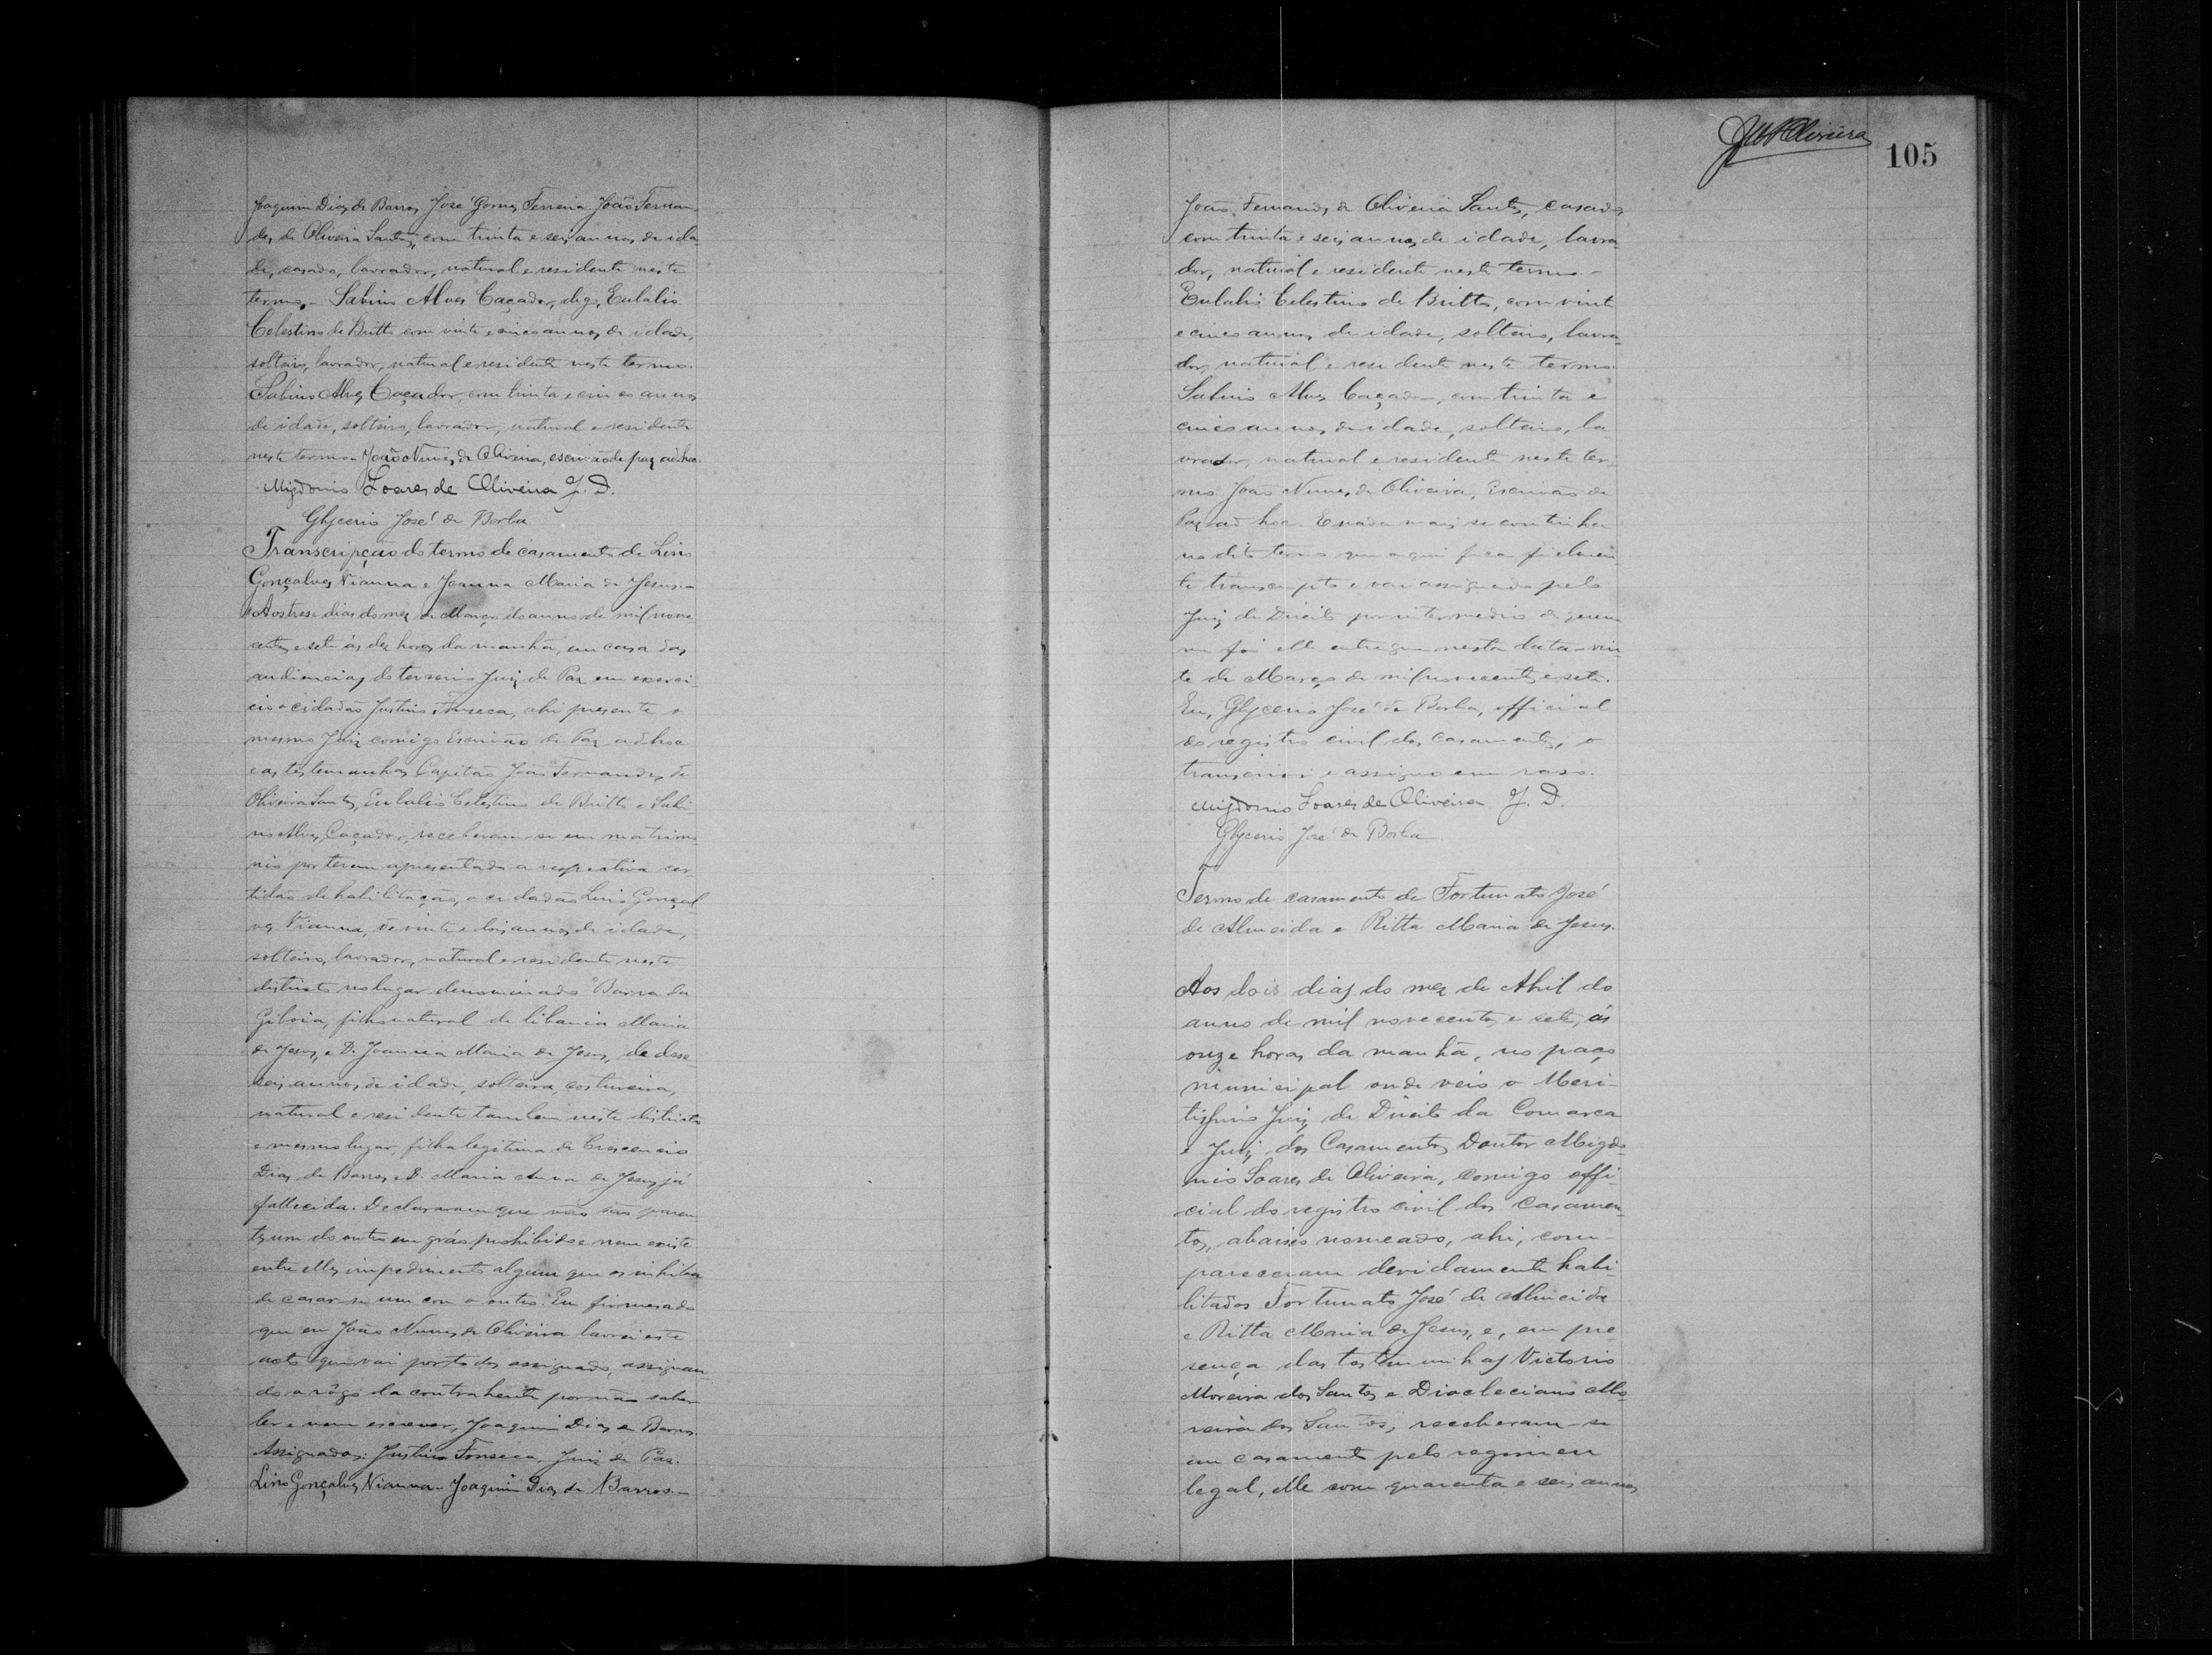 Joaquim Dias de Barros José Gomes Ferreira João Fernan-
des de Oliveira Santos, com trinta e seis annos de ida-
de, casado, lavrador, natural e residente neste
termo. - Sabino Alves Caçador, digo, Eulalio
Celestino de Britto com vinte e cinco annos de idade,
solteiro, lavrador, natural e residente neste termo.
Sabino Alves Caçador, com trinta e cinco annos
de idade, solteiro, lavrador, natural e residente
neste termo - João Nunes de Oliveira, escrivão de paz ad-hoc.
Migdonio Soares de Oliveira J. D.
Glycerio José de Borba
Transcripção do termo de casamento de Lino
Gonçalves Vianna e Joanna Maria de Jesus. -
Aos trese dias do mez de Março do anno de mil nove
centos e sete ás dez horas da manhã, em casa das
audiencias do terceiro Juiz de Paz em exerci-
cio o cidadão Justino Fonseca, ahi presente o
mesmo Juiz comigo Escrivão de Paz ad hoc
e as testemunhas Capitão João Fernandes de
Oliveira Santos, Eulalio Celestino de Britto e Sabi-
no Alves Caçador, receberam-se em matrimo
nio por terem apresentado a respectiva cer-
tidão de habilitação, o cidadão Lino Gonçal
ves Vianna, de vinte e dois annos de idade,
solteiro, lavrador, natural e residente neste
districto no lugar denominado "Barra da
Giboia, filho natural de Libania Maria
de Jesus, e D. Joanna Maria de Jesus, de dese
seis annos de idade, solteira, costureira,
natural e residente tambem neste districto
e mesmo lugar, filha legitima de Crescencio
Dias de Barros e D. Maria Anna de Jesus já
fallecida. Declararam que não são paren
tes um do outro em gráo prohibido e nem existe
entre elles impedimento algum que os inhiba
de casar-se um com o outro. Em firmesa do
que eu João Nunes de Oliveira lavrei este
acto que vai por todos assignado, assignan
do a rôgo da contrahente por não saber
ler e nem escrever, Joaquim Dias de Barros.
Assignados: Justino Fonseca, Juiz de Paz.
Lino Gonçalves Vianna - Joaquim Dias de Barros. -
105
João Fernandes de Oliveira Santos, casado
com trinta e seis annos de idade, lavra-
dor, natural e residente neste termo. -
Eulalio Celestino de Britto, com vint
e cinco annos de idade, solteiro, lavra-
dor, natural e residente neste termo.
Sabino Alves Caçador, com trinta e
cinco annos, de idade, solteiro, la-
vrador, natural e residente neste ter-
mo. João Nunes de Oliveira, Escrivão de
Paz ad hoc. E nada mais se continha
no dito termo que aqui fica fielmen-
te transcripto e vai assignado pelo
Juiz de Direito por intermedio de quem
me foi elle entregue nesta data - vin-
te de Março de mil novecentos e sete.
Eu, Glycerio José de Borba, official
do registro civil dos casamentos, o
transcrevi e assigno em raso.
Migdonio Soares de Oliveira J. D.
Glycerio José de Borba
Termo de casamento de Fortunato José
de Almeida e Ritta Maria de Jesus.
Aos dois dias do mez de Abril do
anno de mil novecentos e sete, ás
onze horas da manhã, no paço
municipal onde veio o Meri-
tissimo Juiz de Direito da Comarca
e Juiz dos Casamentos Doutor Migdo-
nio Soares de Oliveira, comigo offi-
cial do registro civil dos casamen-
tos, abaixo nomeado, ahi, com-
pareceram devidamente habi-
litados Fortunato José de Almeida
e Ritta Maria de Jesus, e, em pre
sença das testemunhas Victorio
Moreira dos Santos e Diocleciano Mo-
reira dos Santos, receberam-se
em casamento pelo regimen
legal, elle com quarenta e seis annos